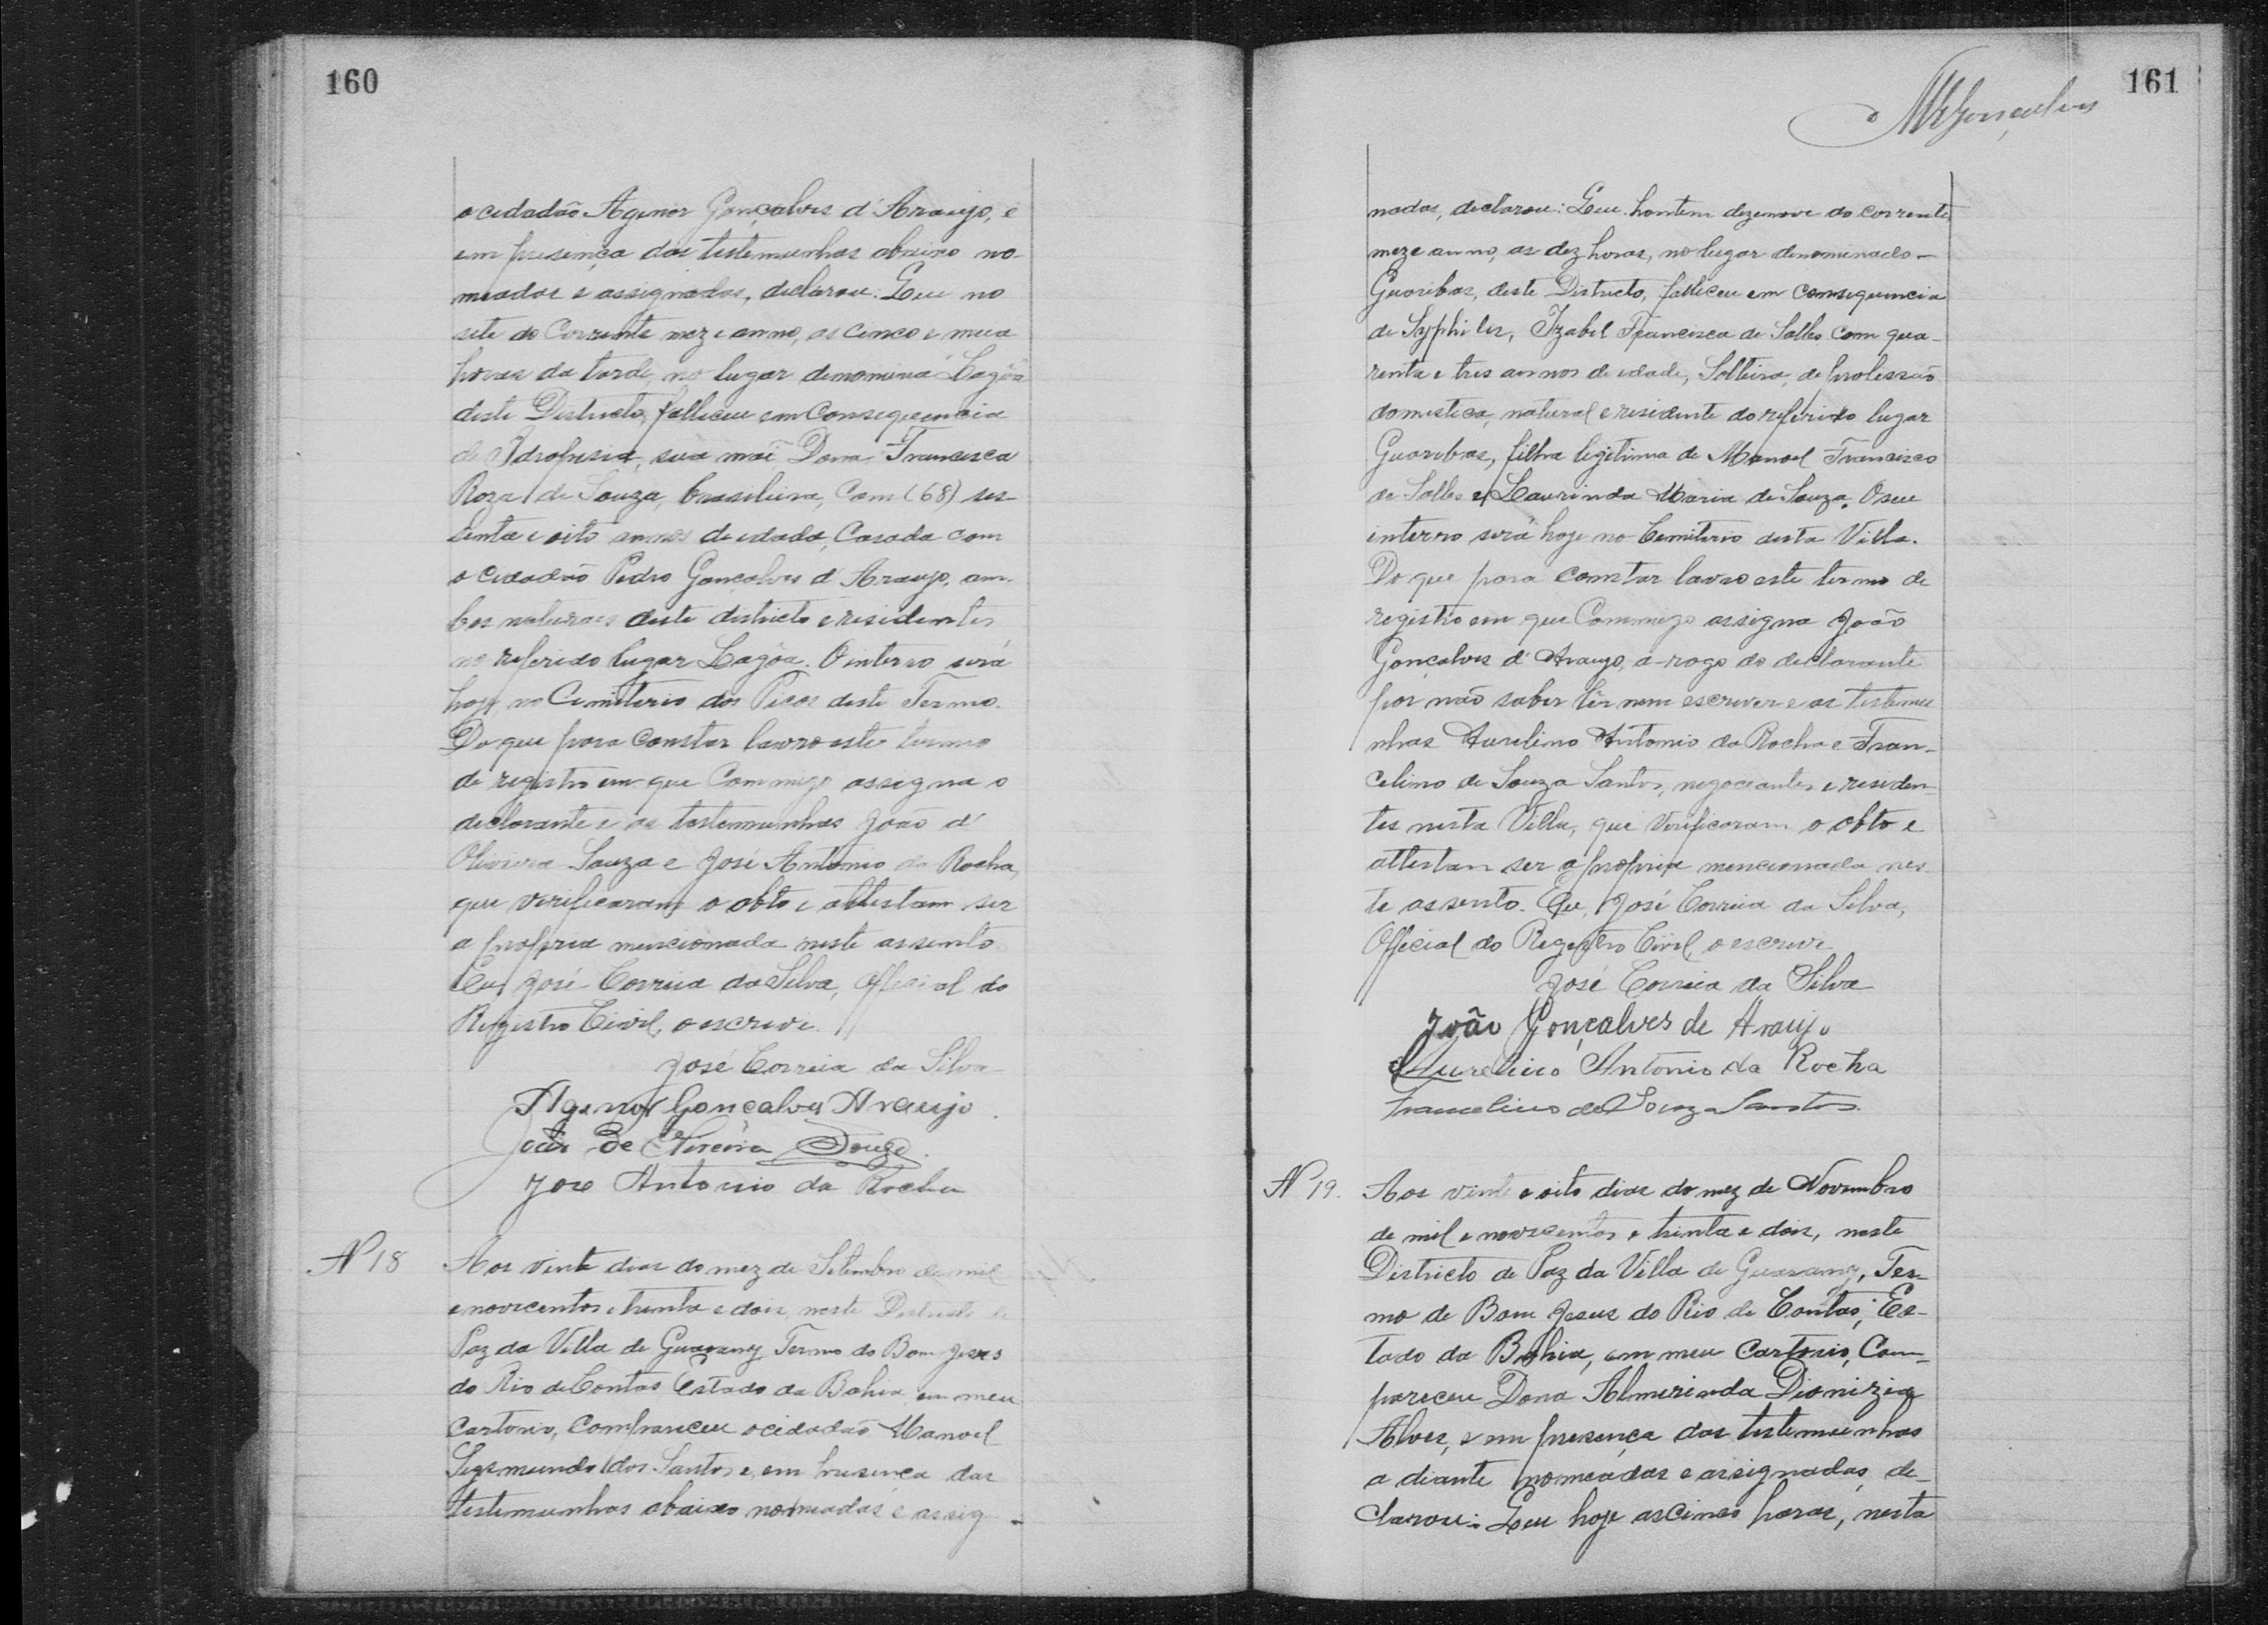 160
o cidadão Agenor Gonçalves d'Araujo, e
em presença das testemunhas abaixo no-
meadas e assignadas, declarou: Que no
sete do Corrente mez e anno, as cinco e meia
horas da tarde, no lugar denomina Lagôa
deste Districto, falleceu em Consequencia
de Idropesia, sua mãi Dona Francisca
Roza de Souza, brasileira, Com (68) ses-
senta e oito annos de edade, Casada com
o cidadão Pedro Gonçalves d'Araujo, am-
bos naturaes deste districto e residentes
no referido lugar Lagôa. O interro será
hoje, no Cemiterio dos Picos deste Termo.
Do que para Constar lavro este termo
de registro em que Commigo assigna o
declarante e as testemunhas João d'
Oliveira Souza e José Antonio da Rocha,
que verificaram o obto e attestam ser
a propria mencionada neste assento.
Eu José Correia da Silva, Official do
Registro Civil, o escrevi.
José Correia da Silva
Agenor Gonçalves Araujo.
João de Oliveira Souza.
Jose Antonio da Rocha
Nº 18
Aos vinte dias do mez de Setembro de mil
e novecentos e trinta e dois, neste Districto de
Paz da Villa de Guarany Termo do Bom Jesus
do Rio de Contas Estado da Bahia, em meu
Cartorio, Compareceu o cidadão Manoel
Segismundo dos Santos e, em presença das
testemunhas abaixo nomeadas e assig-
161
MGonçalves
nadas, declarou: Que hontem dezenove do corrente
mez e anno, as dez horas, no lugar denominado-
Guaribas, deste Districto, falleceu em Consequencia
de Syphiles, Izabel Francisca de Salles com qua-
renta e tres annos de edade, Solteira, de profissão
domestica, natural e residente do referido lugar
Guaribas, filha legitima de Manoel Francisco
de Salles e Laurinda Maria de Souza. O seu
interro será hoje no Cemiterio desta Villa.
Do que para Constar lavro este termo de
registro em que Commigo assigna João
Gonçalves d'Araujo, a-rogo do declarante
por não saber lêr nem escrever e as testemu
nhas Aurelino Antonio da Rocha e Fran-
celino de Souza Santos, negociantes e residen-
tes nesta Villa, que Verificaram o obto e
attestam ser a propria mencionada nes
te assento. Eu, José Correia da Silva,
Official do Registro Civil, o escrevi
José Correia da Silva
João Gonçalves de Araujo
Aurelino Antonio da Rocha
Francelino de Souza Santos.
Nº 19.
Aos vinte e oito dias do mez de Novembro
de mil e novecentos e trinta e dois, neste
Districto de Paz da Villa de Guarany, Ter-
mo de Bom Jesus do Rio de Contas, Es-
tado da Bahia, em meu Cartorio, Com-
pareceu Dona Almerinda Dionizia
Alves, e em presença das testemunhas
a diante nomeadas e assignadas, de-
clarou: Que hoje as Cinco horas, nesta